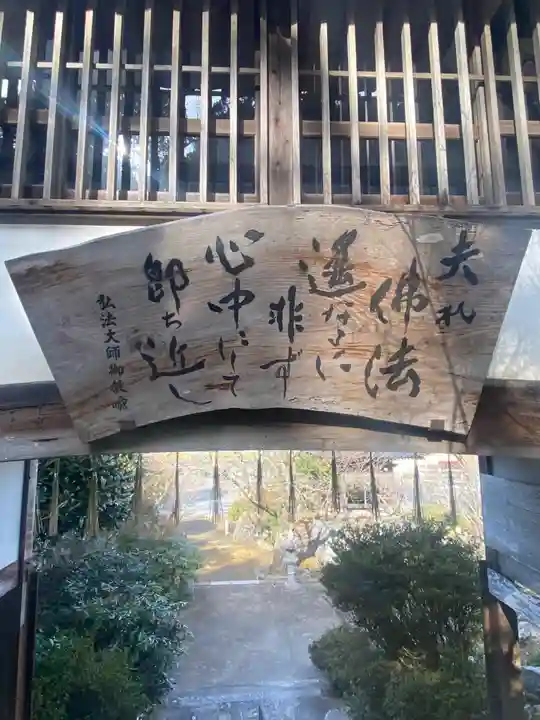 夫れ
佛法
遥かに
非ず
心中にして
即ち近し
弘法大師御教喩